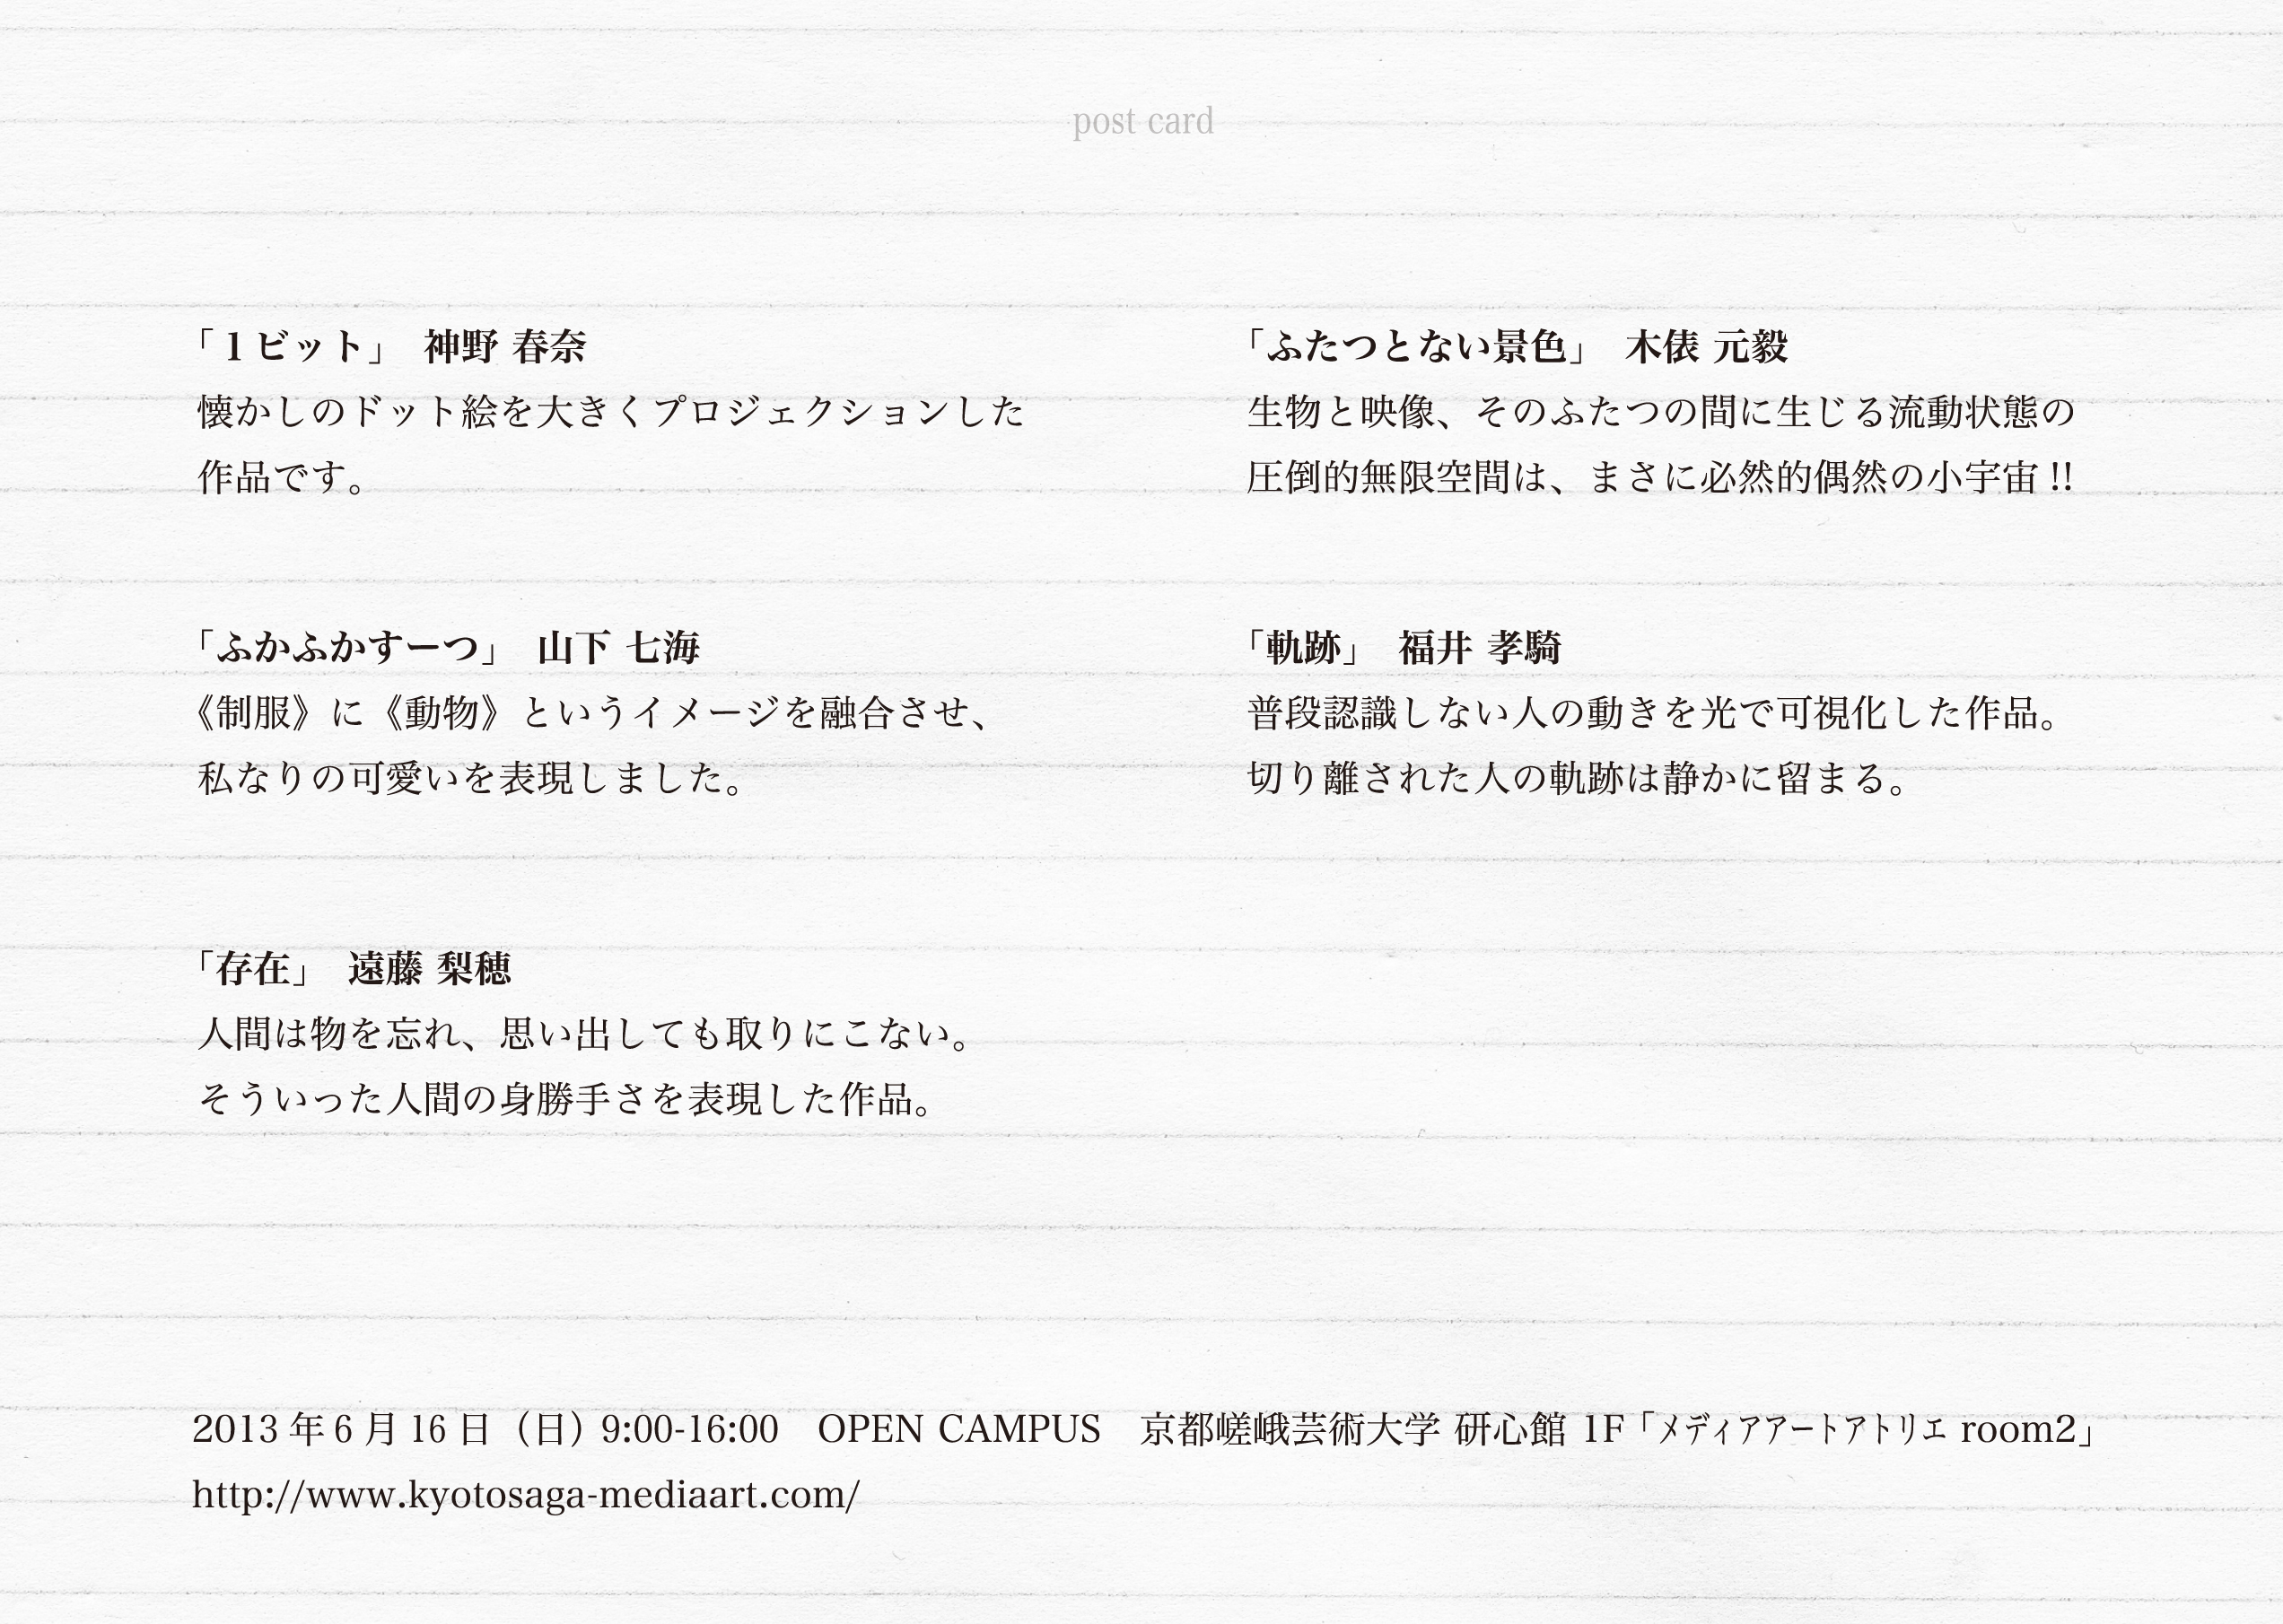 post card
「1 ビット」 神野 春奈
懐かしのドット絵を大きくプロジェクションした
作品です。
「ふかふかすーつ」 山下 七海
《制服》に《動物》というイメージを融合させ、
私なりの可愛いを表現しました。
「存在」 遠藤 梨穂
人間は物を忘れ、思い出しても取りにこない。
そういった人間の身勝手さを表現した作品。
「ふたつとない景色」 木俵 元毅
生物と映像、そのふたつの間に生じる流動状態の
圧倒的無限空間は、まさに必然的偶然の小宇宙 !!
「軌跡」 福井 孝騎
普段認識しない人の動きを光で可視化した作品。
切り離された人の軌跡は静かに留まる。
2013 年 6 月 16 日（日）9:00-16:00 OPEN CAMPUS 京都嵯峨芸術大学 研心館 1F「メディアアートアトリエ room2」
http://www.kyotosaga-mediaart.com/